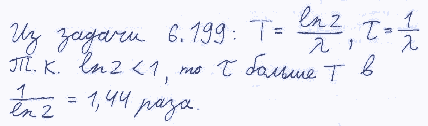 Из задачи 6.199: T = ln2/λ, τ = 1/λ
Т.к. ln2 < 1, то τ больше T в
1/ln2 = 1,44 раза.